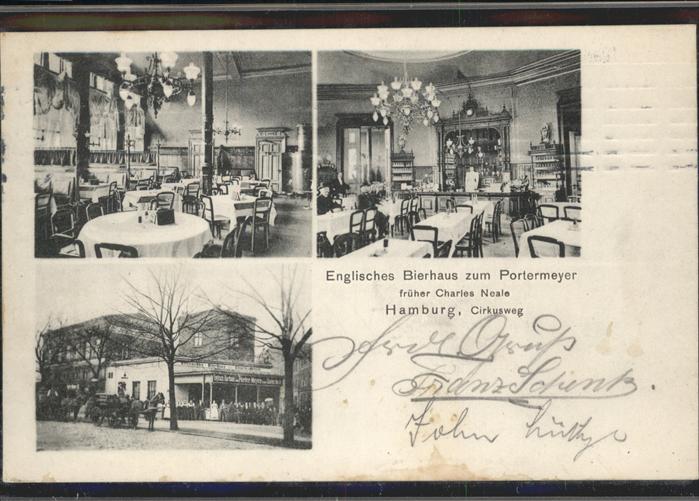 Englisches Bierhaus zum Portermeyer
früher Charles Neale
Hamburg, Cirkusweg
Gruß
Franz Schenk.
John